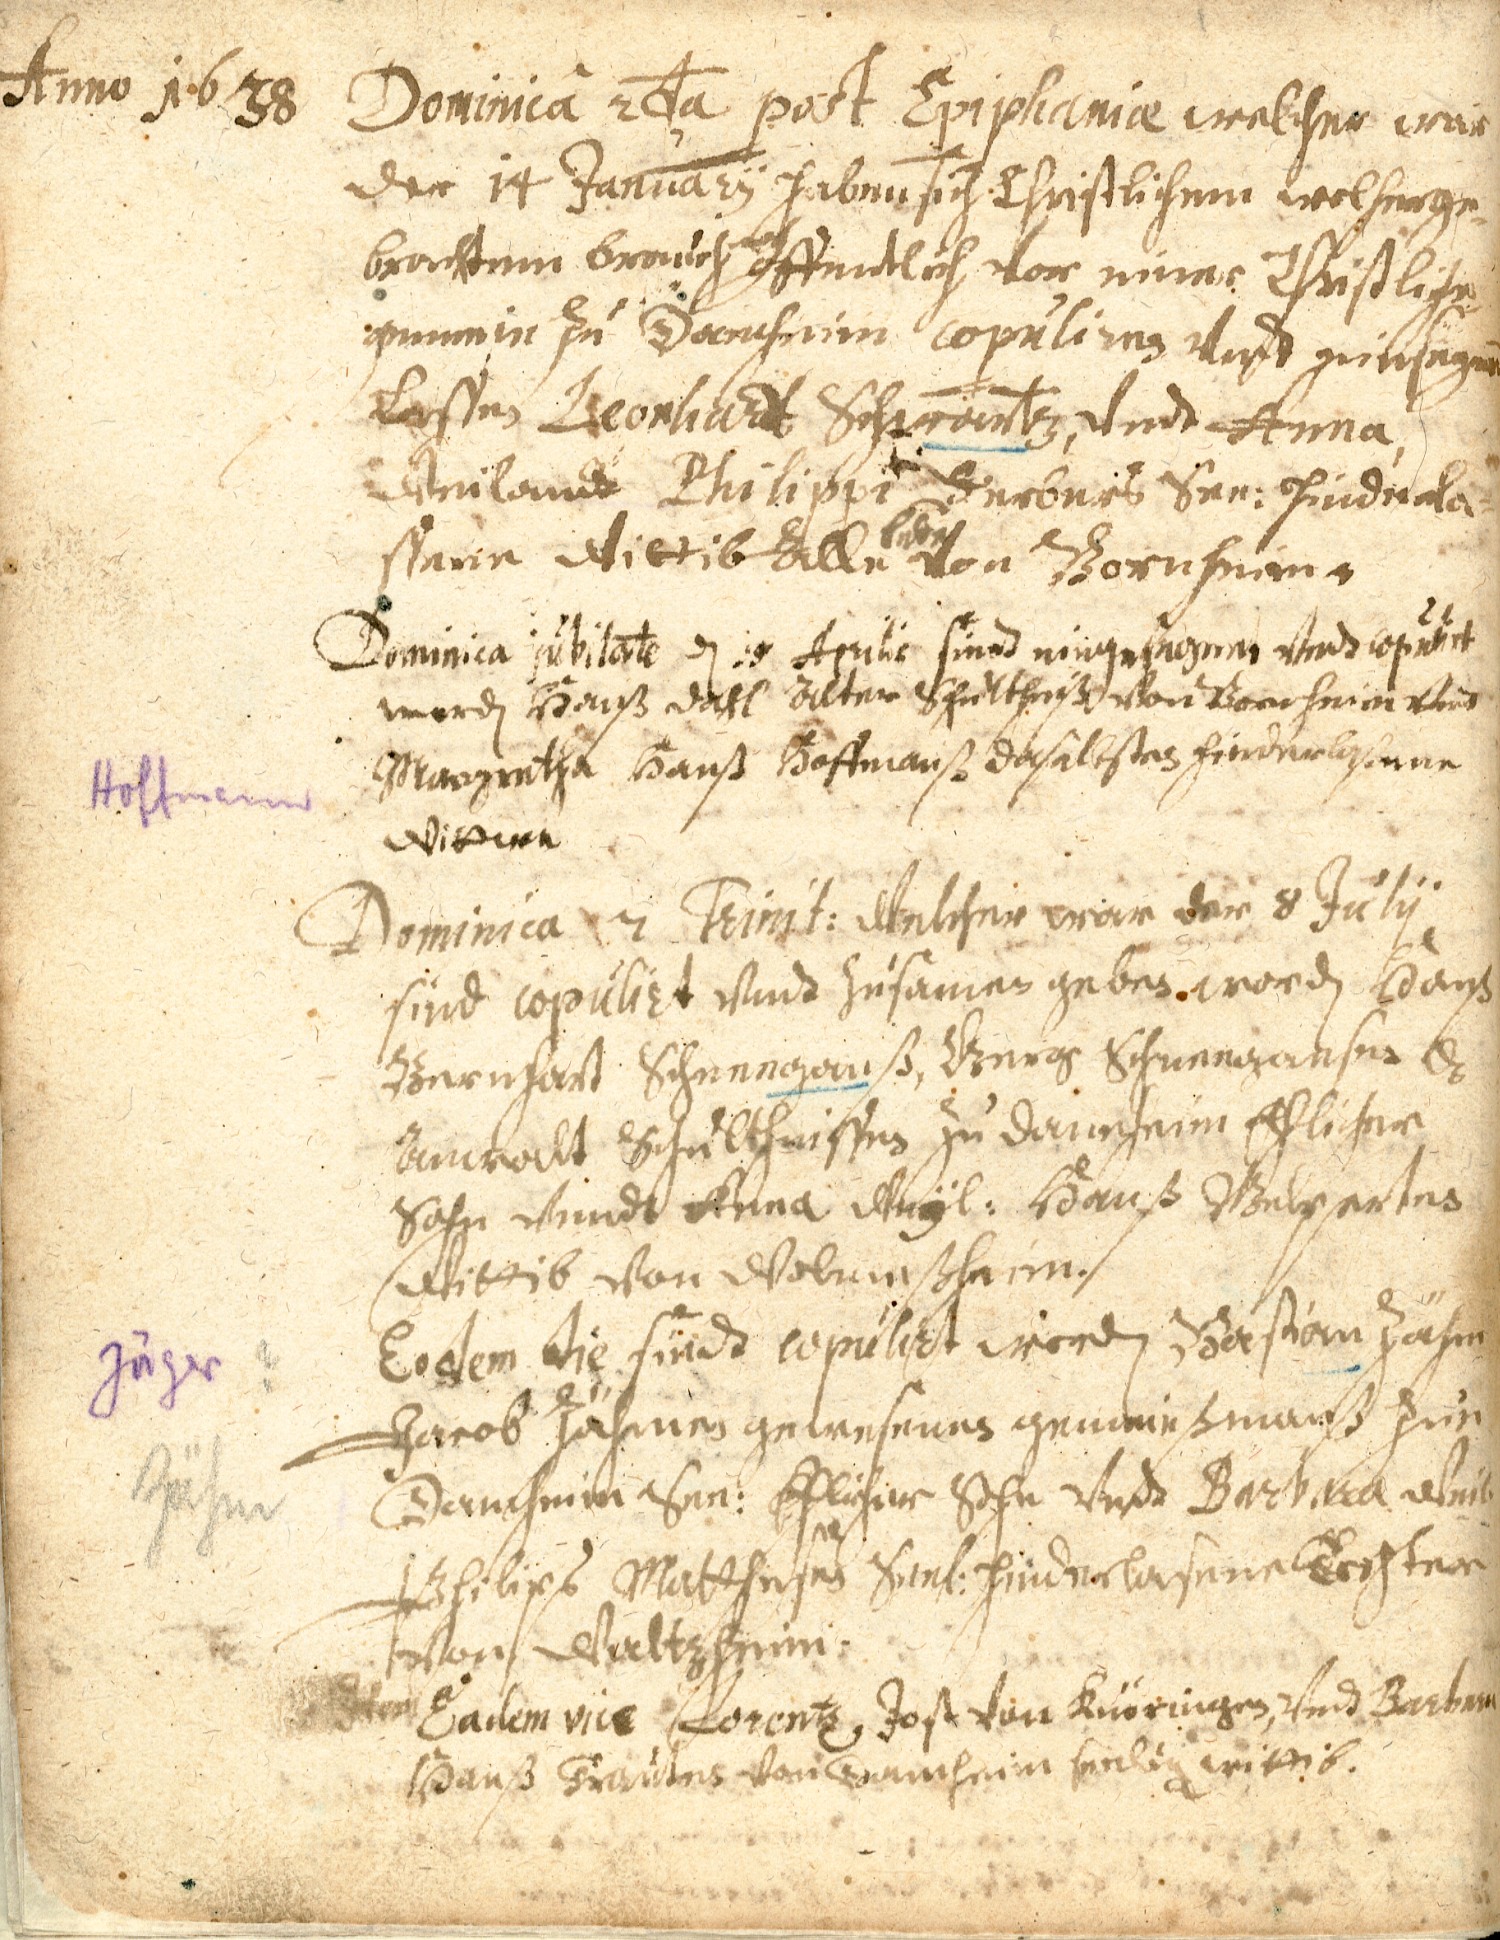 Anno 1638
Dominica 2da post Epiphaniæ welcher war
der 14 Januarij haben sich Christlichem wolherge-
brachtem brauch nach öffendtlich vor einer Christlichen
gemein zu Damheim copuliren undt einsegnen
lassen Leonhardt Schwartz, undt Anna,
Weilandt Philippi Ferbers See: hinderla-
ssene Wittib alle beede von Bornheim
Dominica jubilate d. Aprilis sindt eingesegnet undt copulirt
word Hanß Dahl alter Schultheiß von Bornheim undt
Margretha Hanß Hoffmanß daselbsten hinderlassene
Wittwe
Hoffmann
Dominica 7 Trinit: Welcher war der 8 Julij
sind copulirt undt zusamen geben word Hanß
Bernhart Schneeganß, Schneegansen
Anwaldt Schultheissen zu Damheim Ehlicher
Sohn undt Anna Weyl: Hanß
Wittib von Wolmeßheim.
Eodem die sindt copulirt word Bastian Jähn
Jäger ?
Jacob Jähnen gewesenen gemeinßmanß zue
Jähn
Damheim See: Ehlicher Sohn undt Barbara Weil
Philips Matthesen Seel: hinderlasene Tochter
von Waltzheim.
Eadem vice Lorentz Jost von Knöringen, undt Barbara
Hanß Trauten von Damheim seelig wittib.